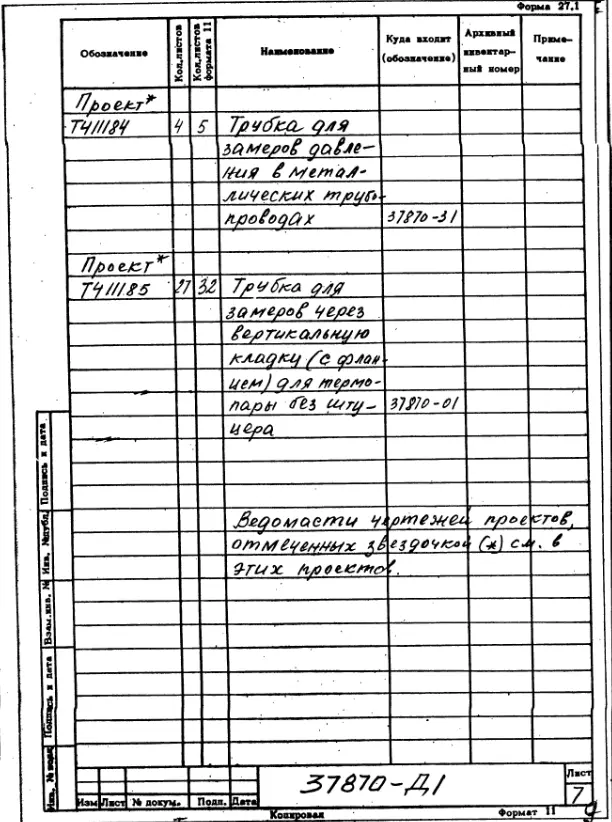 Форма 27.1
Обозначение Кол.листов Кол.листов формата 11 Наименование Куда входит (обозначение) Архивный инвентарный номер Примечание
Проект*
Т411184 4 5 Трубка для
замеров давле-
ния в метал-
лических трубо-
проводах 37870-31
Проект*
Т411185 27 32 Трубка для
замеров через
вертикальную
кладку (с флан-
цем) для термо-
пары без шту- 37870-01
цера
Ведомасти чертежей проектов,
отмеченных звездочкой (*) см. в
этих проектов.
Подпись и дата
Инв. №дубл.
Взам.инв. №
Подпись и дата
Инв. № подл
37870-Д1
Лист
7
Изм Лист № докум. Подп. Дата
Копировал Формат 11